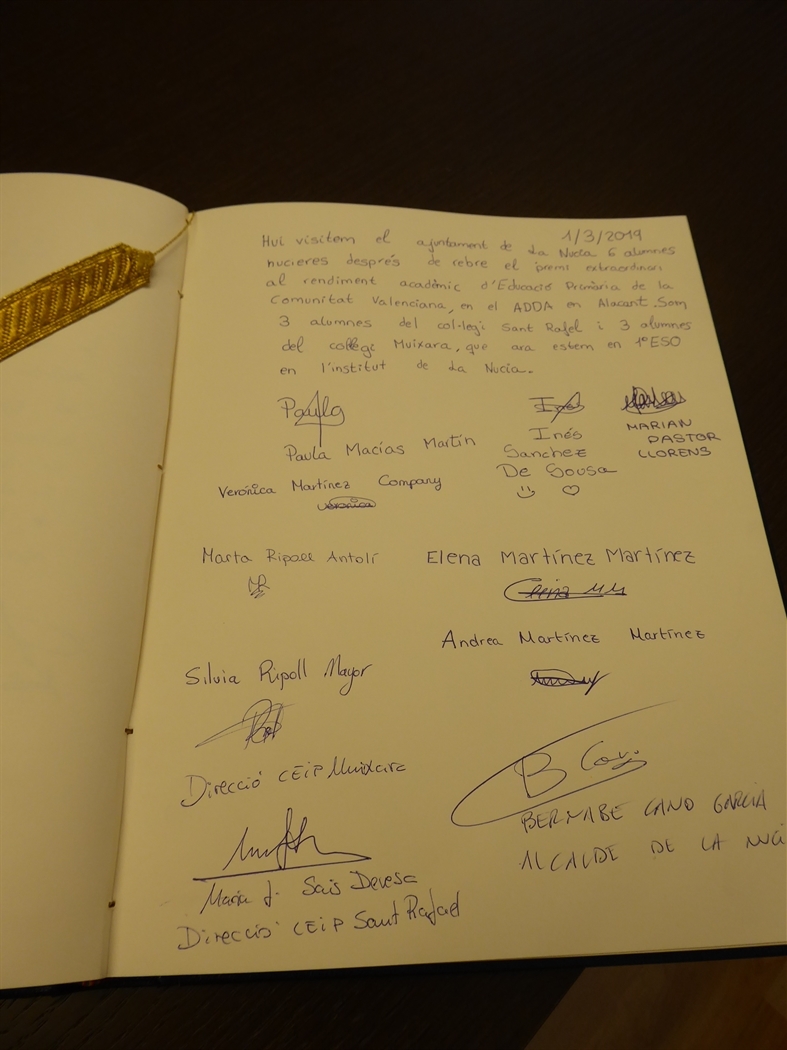 1/3/2019
Hui visitem el ajuntament de La Nucia 6 alumnes
nucieres després de rebre el premi extraordinari
al rendiment acadèmic d'Educació Primària de la
Comunitat Valenciana, en el ADDA en Alacant. Som
3 alumnes del col·legi Sant Rafel i 3 alumnes
del collegi Muixara, que ara estem en 1º ESO
en l'institut de La Nucia.
Paula
Inés
Paula Macías Martín
Inés
Sanchez
De Sousa
MARIAN
PASTOR
LLORENS
Verónica Martínez Company
Verónica
Marta Ripoll Antolí
Elena Martínez Martínez
Elena MM
Andrea Martínez Martínez
Silvia Ripoll Mayor
Direcció CEIP Muixara
B Cano
BERNABE CANO GARCIA
ALCALDE DE LA NUCI
Maria J. Sais Devesa
Direcció CEIP Sant Rafael